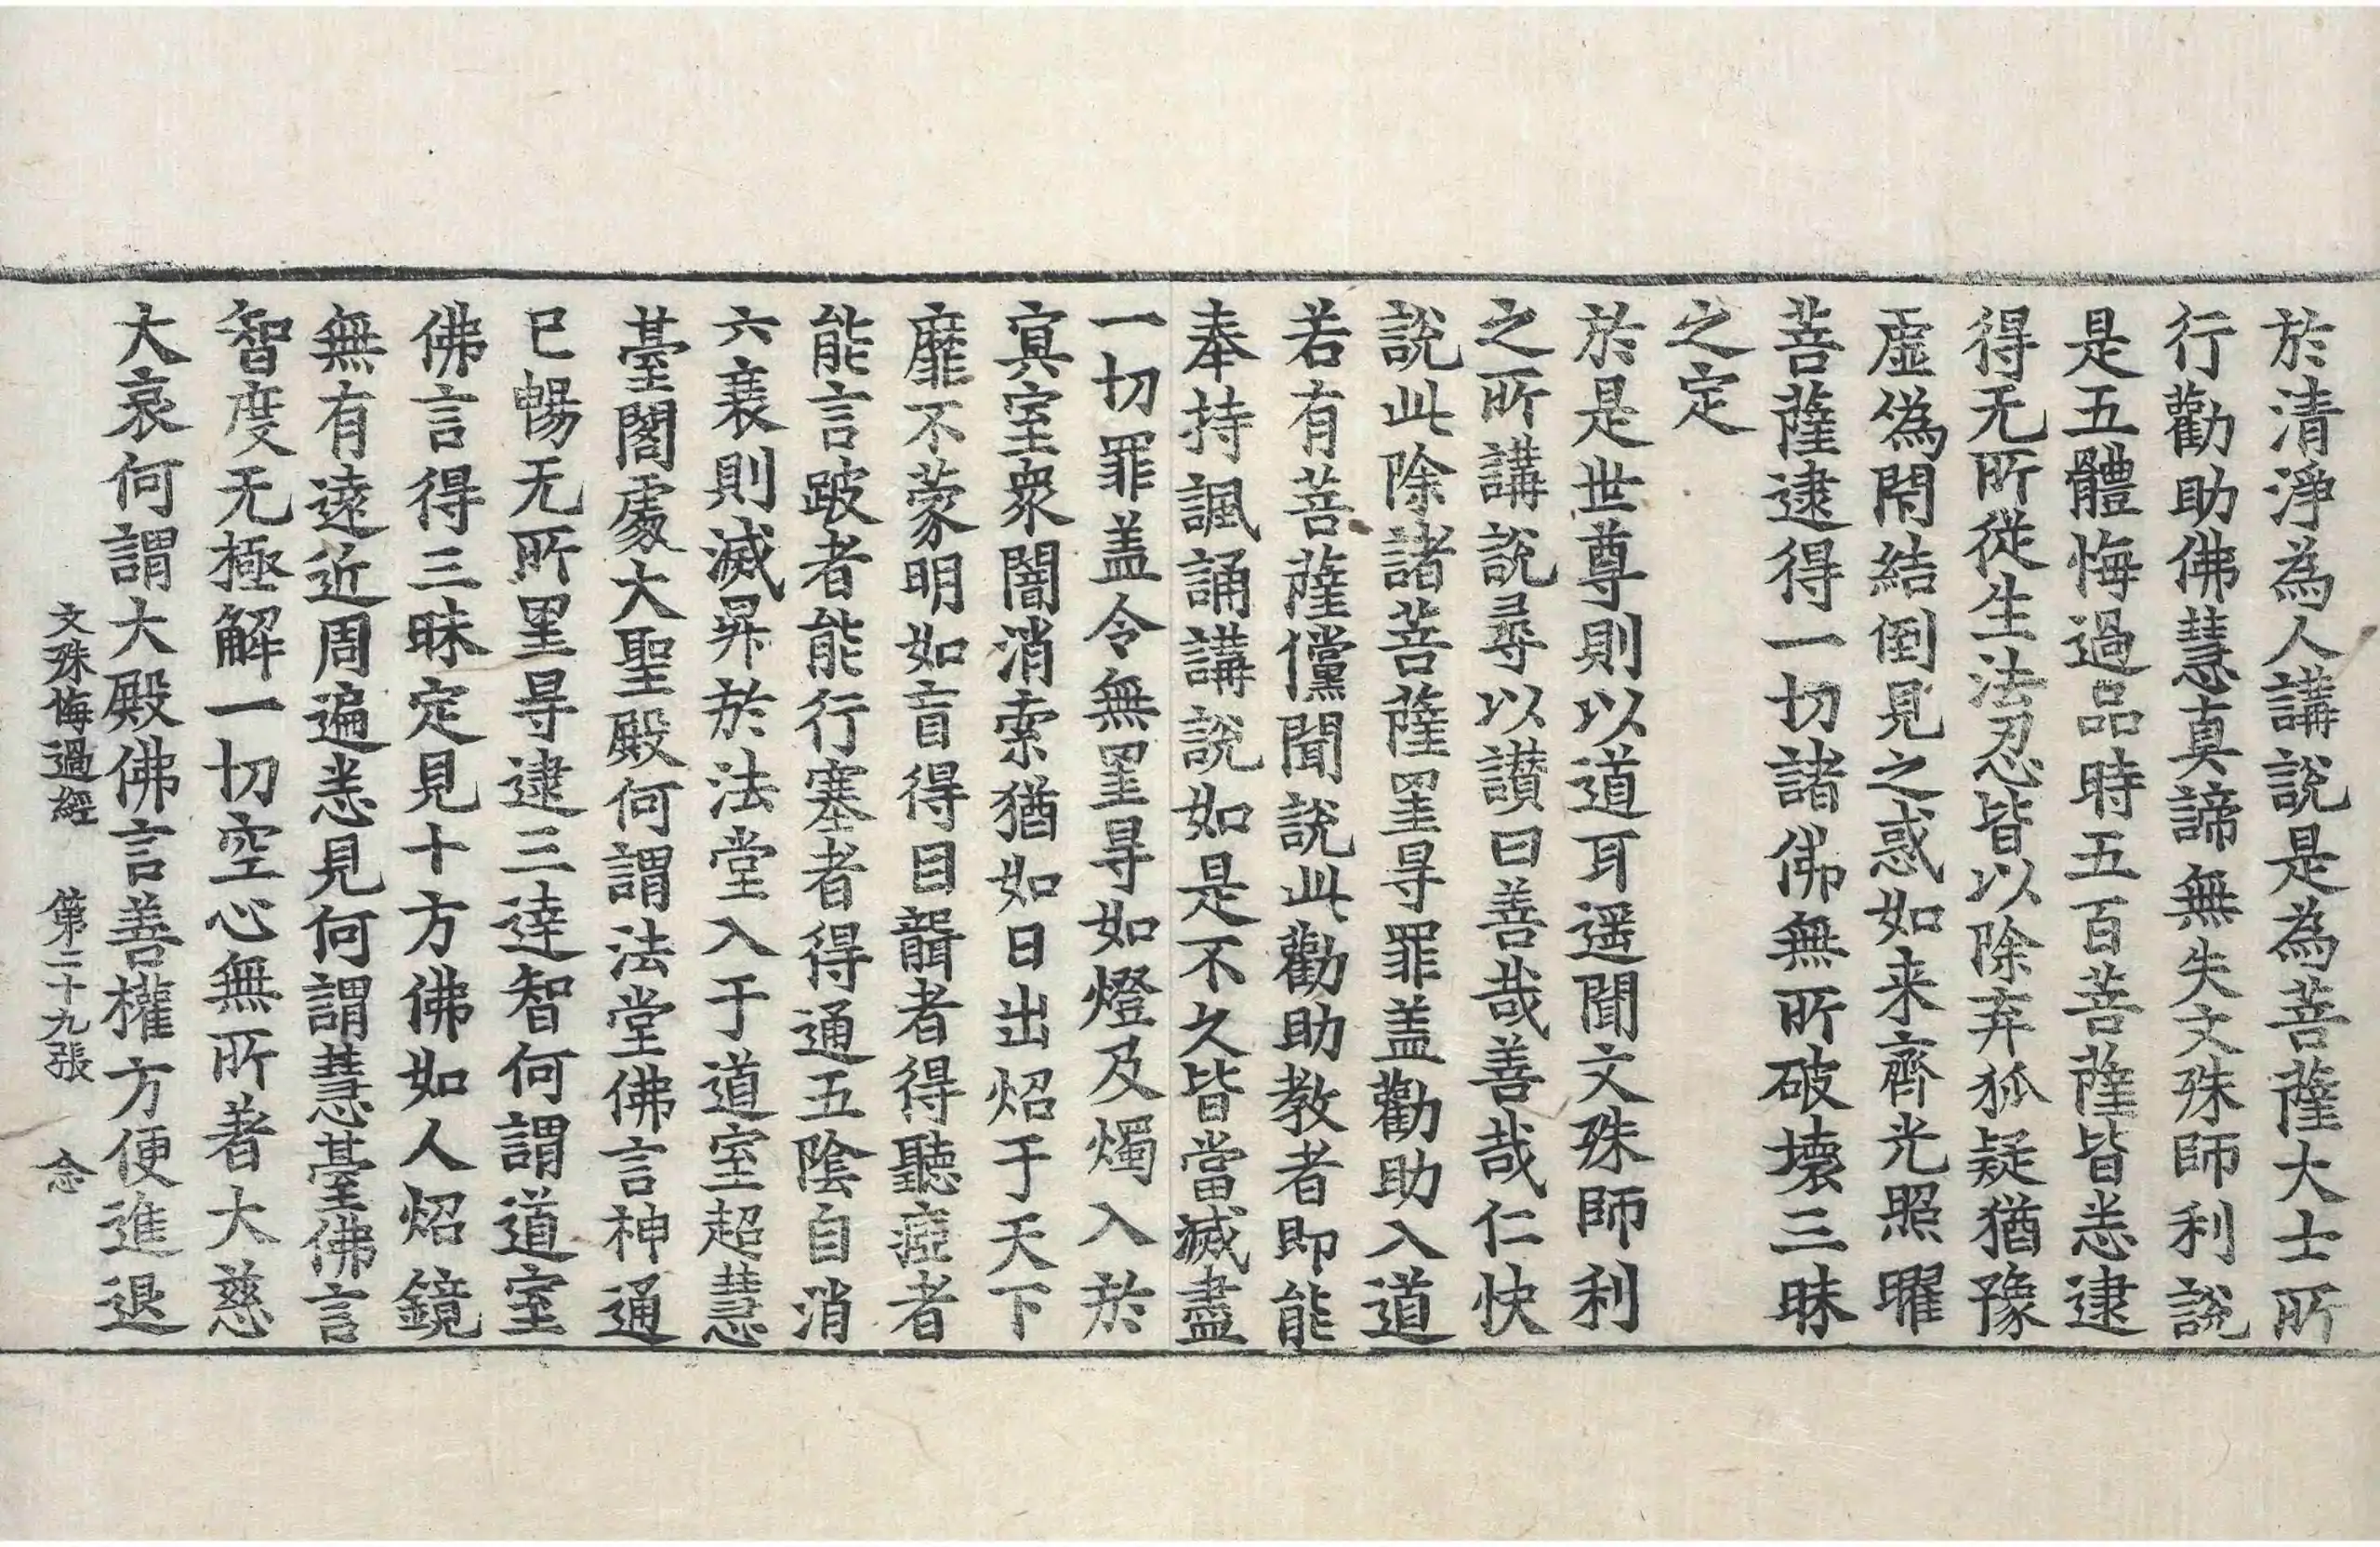 於清淨為人講說是為菩薩大士所
行勸助佛慧真諦無失文殊師利說
是五體悔過品時五百菩薩皆悉逮
得无所從生法忍皆以除弃狐疑猶豫
虛偽閇結倒見之惑如来齊光照曜
菩薩逮得一切諸佛無所破壞三昧
之定
於是世尊則以道耳遥聞文殊師利
之所講說尋以讃曰善哉善哉仁快
說此除諸菩薩罣㝵罪盖勸助入道
若有菩薩儻聞說此勸助教者即能
奉持諷誦講說如是不久皆當滅盡
一切罪盖令無罣㝵如燈及燭入於
冥室衆闇消索猶如日出炤于天下
靡不蒙明如盲得目聾者得聽瘂者
能言跛者能行塞者得通五陰自消
六衰則滅昇於法堂入于道室超慧
臺閣處大聖殿何謂法堂佛言神通
已暢无所罣㝵逮三達智何謂道室
佛言得三昧定見十方佛如人炤鏡
無有遠近周遍悉見何謂慧臺佛言
智度无極解一切空心無所著大慈
大哀何謂大殿佛言善權方便進退
文殊悔過經 第二十九張 念